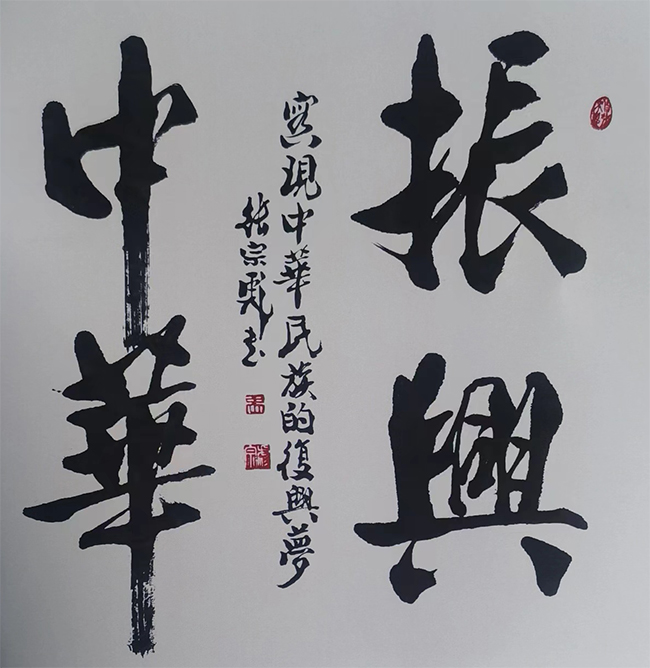 振興
中華
實現中華民族的復興夢
張宗彪書